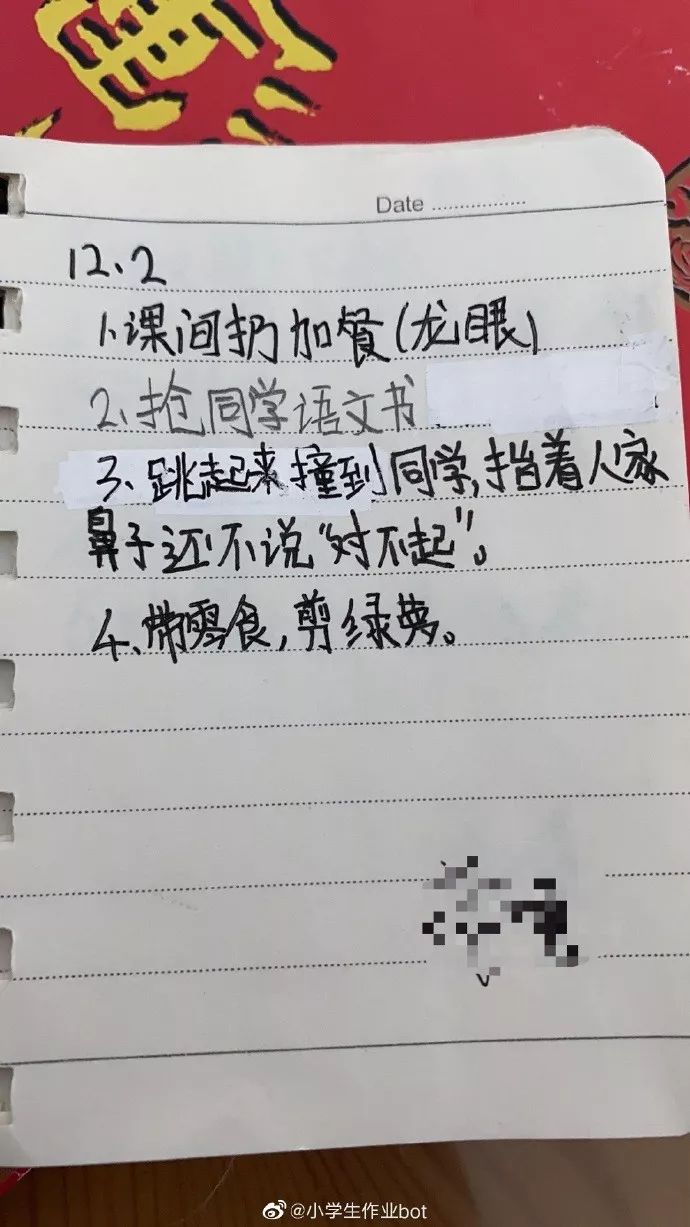 Date
12.2
1、课间扔加餐(龙眼)
2、抢同学语文书
3、跳起来撞到同学,指着人家
鼻子还不说“对不起”。
4、带零食,剪绿萝。
@小学生作业bot